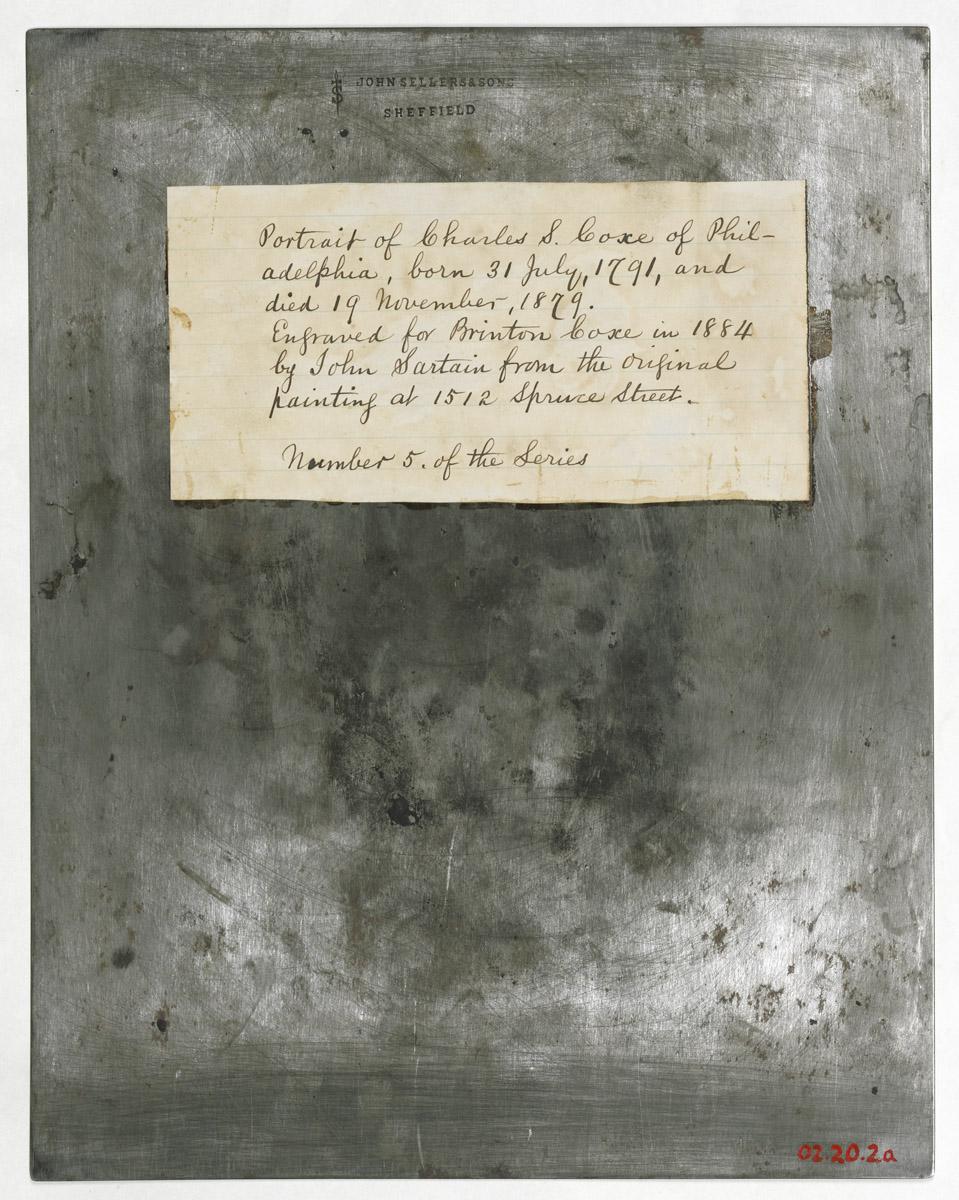 JOHN SELLERS & SONS
SHEFFIELD
Portrait of Charles S. Coxe of Phil-
adelphia, born 31 July, 1791, and
died 19 November, 1879.
Engraved for Brinton Coxe in 1884
by John Sartain from the original
painting at 1512 Spruce Street.
Number 5. of the Series
02.20.2a